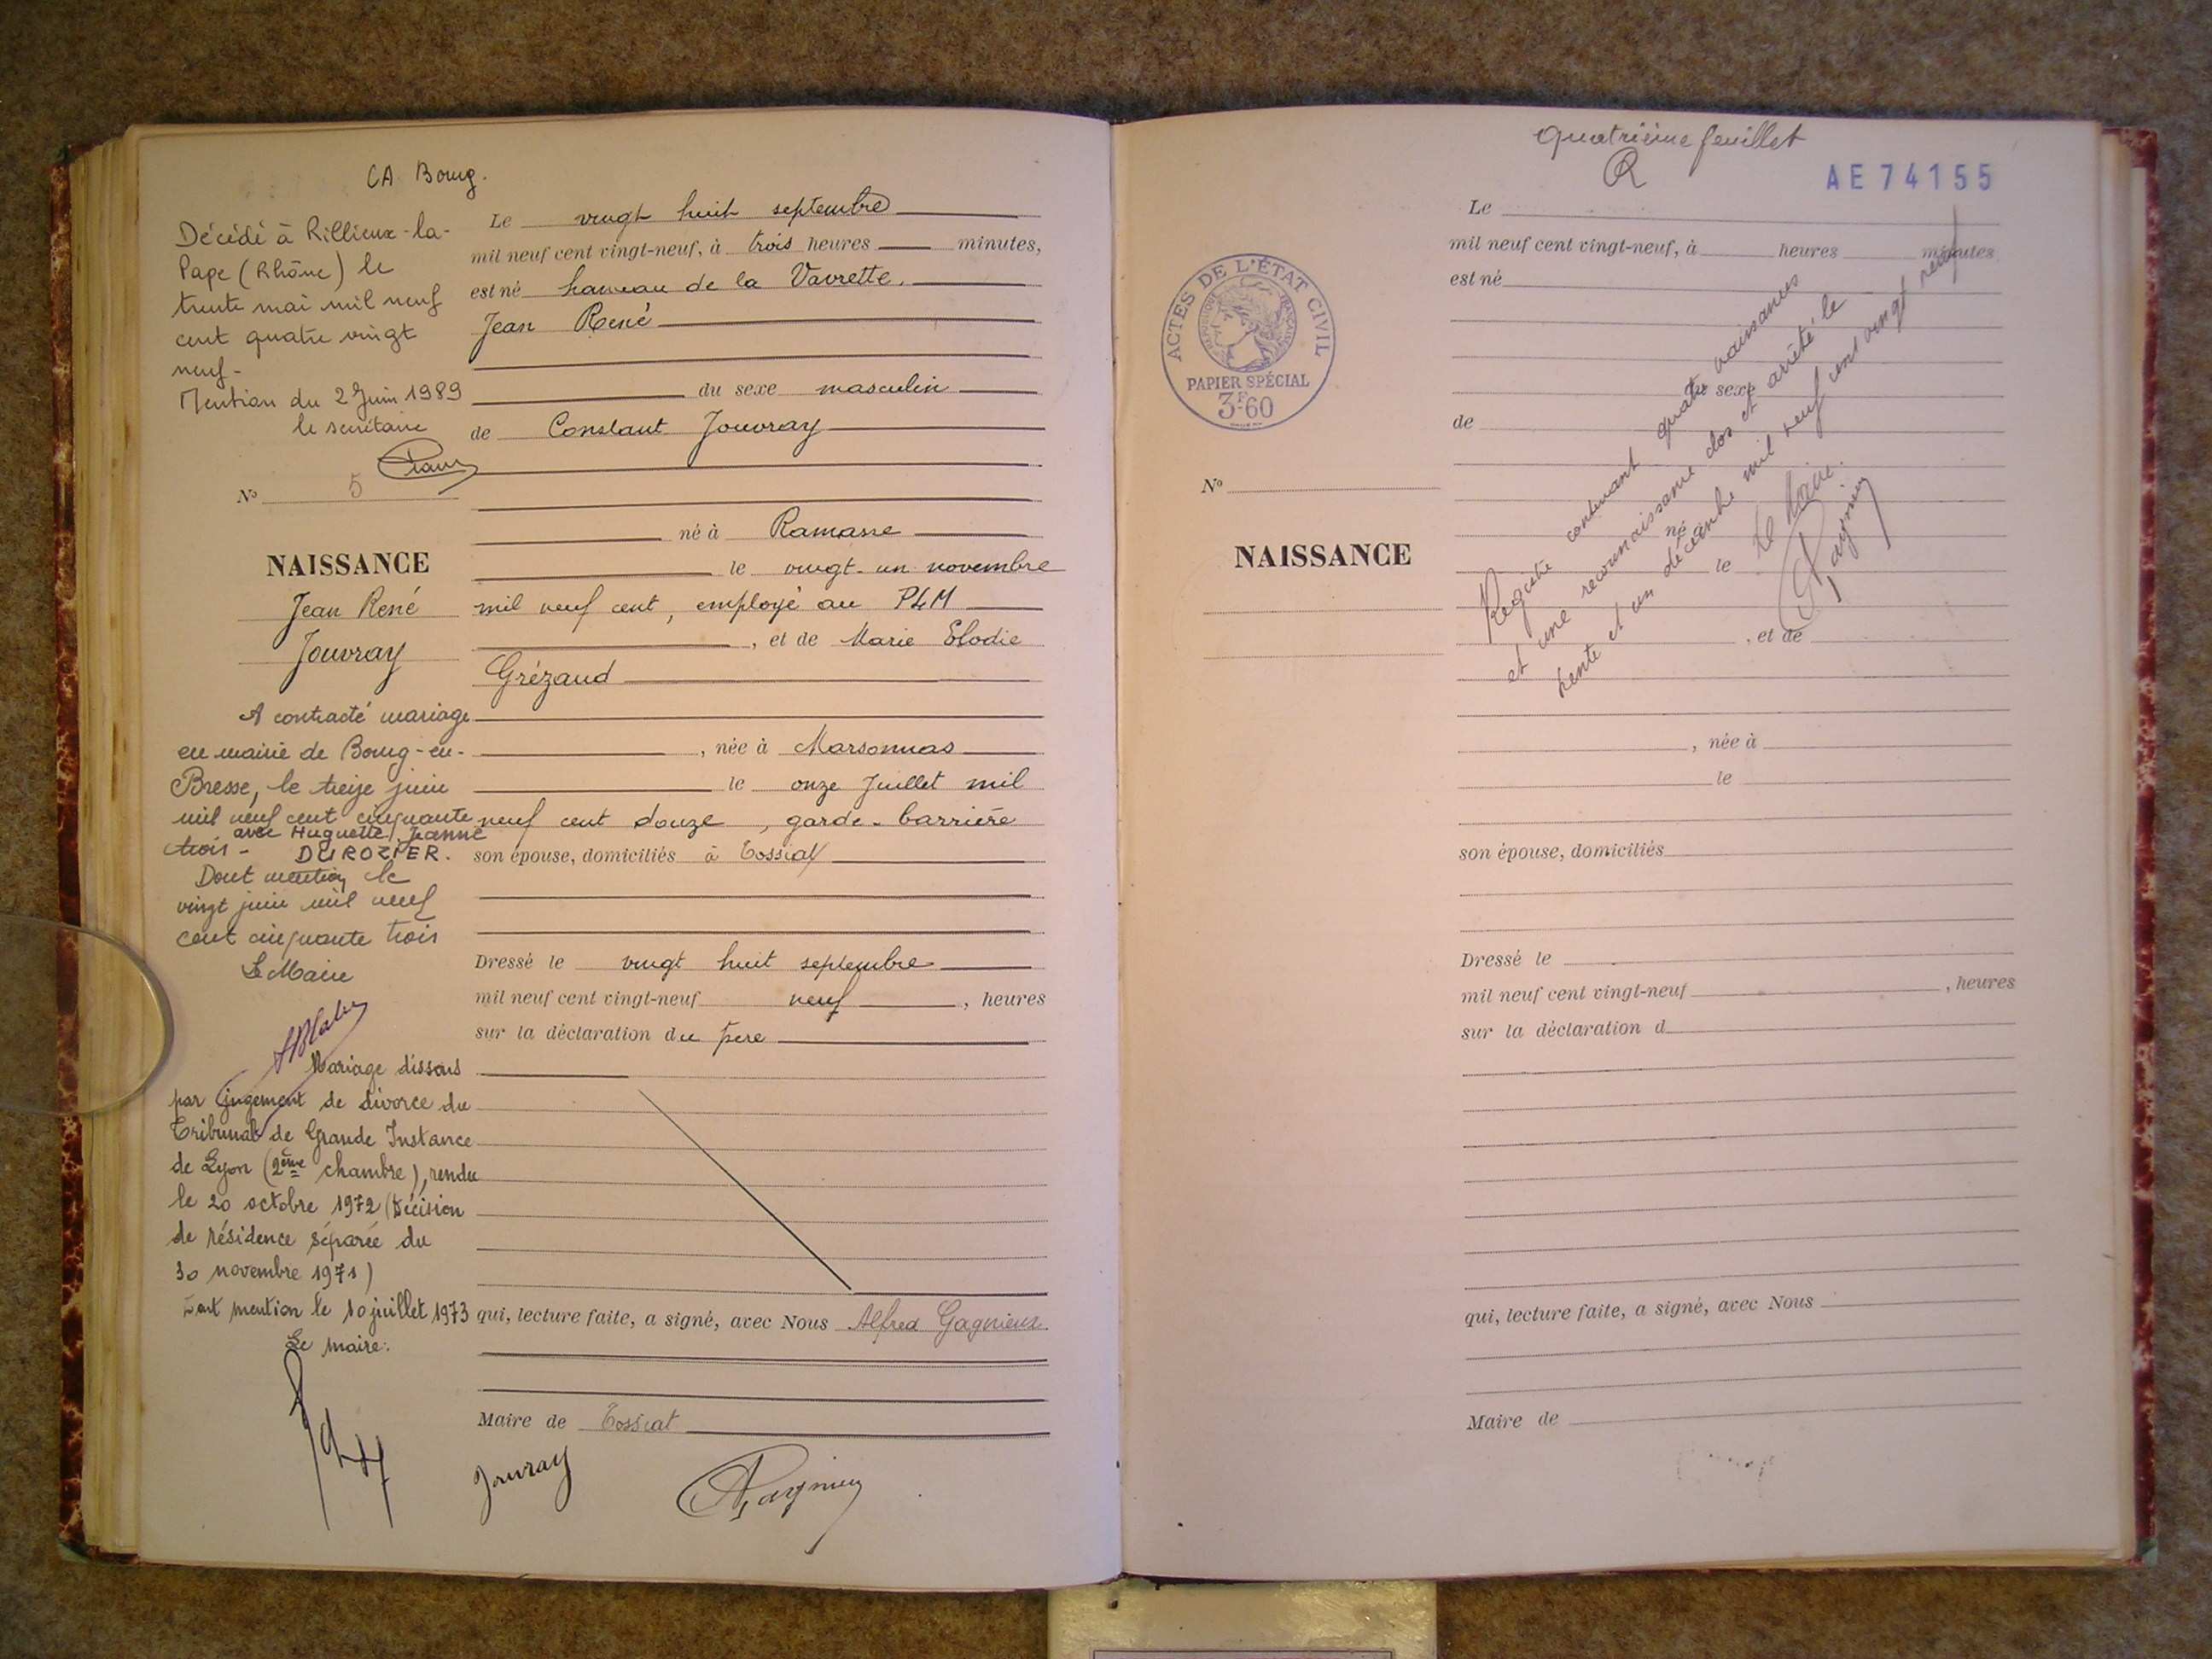 CA Bourg.
Décédé à Rillieux-la-
Pape (Rhône) le
trente mai mil neuf
cent quatre vingt
neuf-
Mention du 2 Juin 1989
le secrétaire
No 5
NAISSANCE
Jean René
Jouvray
A contracté mariage
en mairie de Bourg-en-
Bresse, le treize juin
mil neuf cent cinquante
trois - avec Huguette, Jeanne
DUROZIER.
Dont mention le
vingt juin mil neuf
cent cinquante trois
Le Maire
Mariage dissous
par jugement de divorce du
Tribunal de Grande Instance
de Lyon (2ème chambre), rendu
le 20 octobre 1972 (Décision
de résidence séparée du
30 novembre 1971)
Dont mention le 10 juillet 1973
Le maire:
Le vingt huit septembre
mil neuf cent vingt-neuf, à trois heures minutes,
est né hameau de la Vavrette.
Jean René
du sexe masculin
de Constant Jouvray
né à Ramasse
le vingt-un novembre
mil neuf cent, employé au PLM
, et de Marie Elodie
Grézaud
, née à Marsonnas
le onze Juillet mil
neuf cent douze, garde-barrière
son épouse, domiciliés à Tossiat
Dressé le vingt huit septembre
mil neuf cent vingt-neuf neuf , heures
sur la déclaration du père
qui, lecture faite, a signé, avec Nous Alfred Gagnieux
Maire de Tossiat
Jouvray
quatrième feuillet
R
AE 74155
ACTES DE L'ÉTAT CIVIL
RÉPUBLIQUE FRANÇAISE
PAPIER SPÉCIAL
3F60
No
NAISSANCE
Le
mil neuf cent vingt-neuf, à heures minutes
est né
du sexe
de
né à
le
, et de
, née à
le
son épouse, domiciliés
Dressé le
mil neuf cent vingt-neuf , heures
sur la déclaration d
qui, lecture faite, a signé, avec Nous
Maire de
Registre contenant quatre naissances
et une reconnaissance clos et arrêté le
trente et un décembre mil neuf cent vingt neuf
Le Maire.